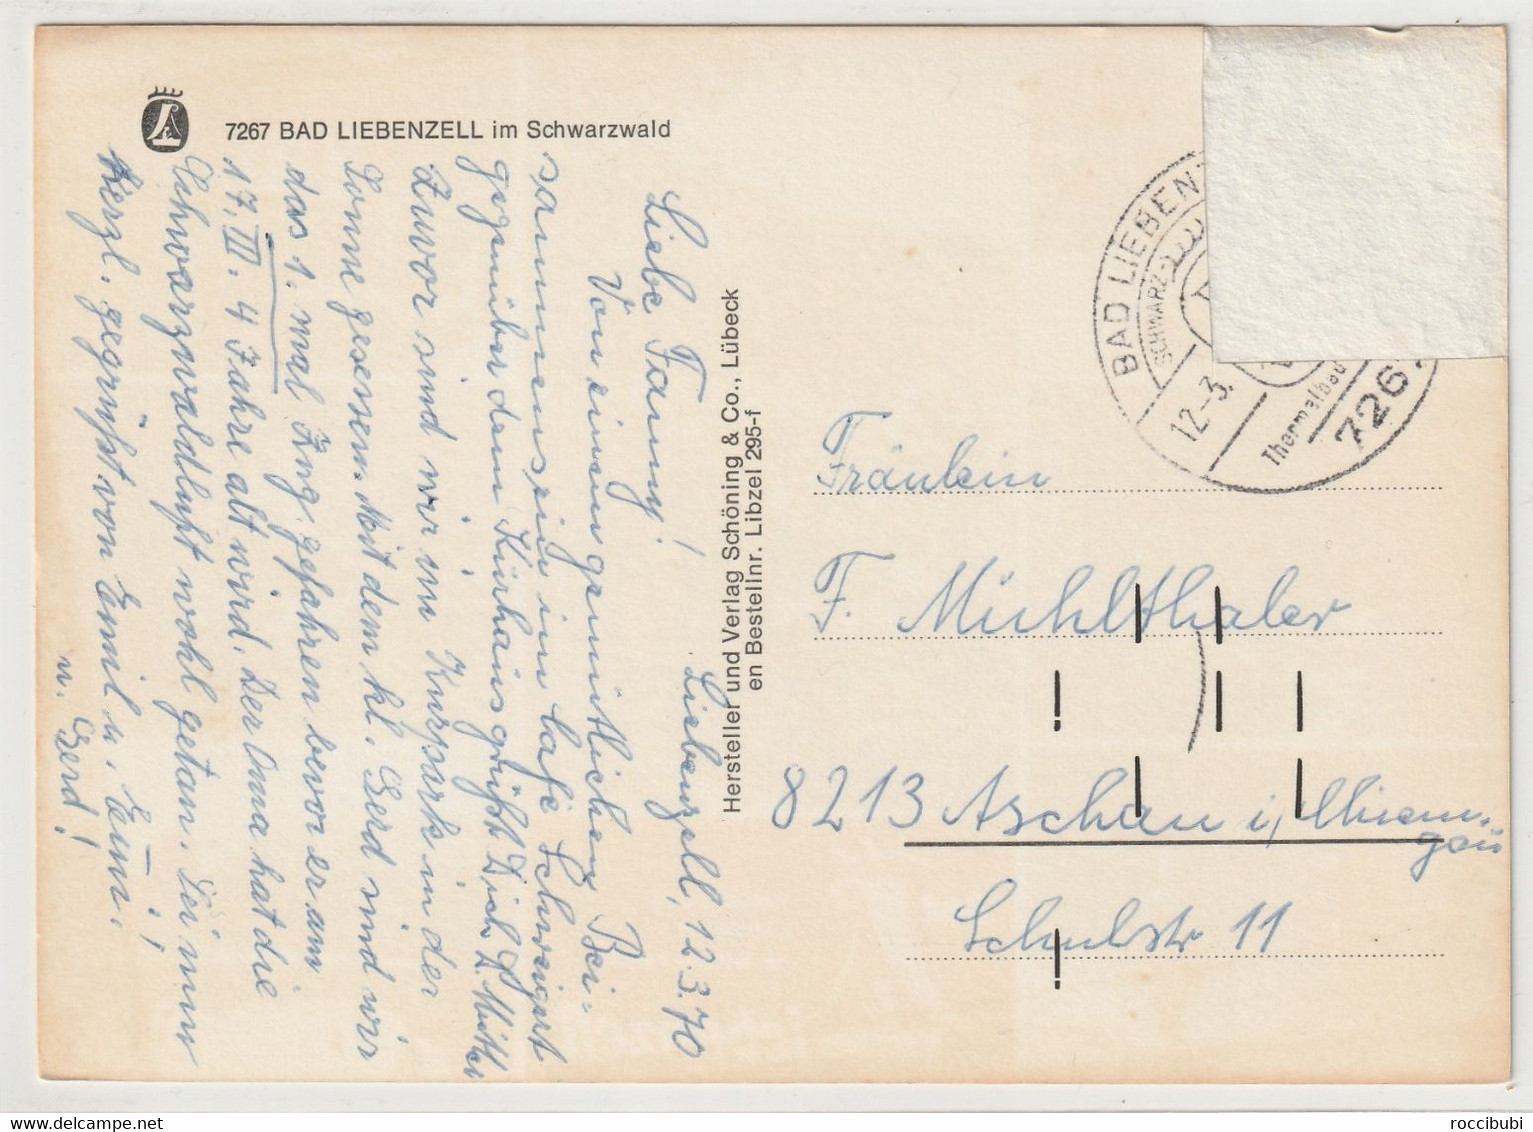 7267 BAD LIEBENZELL im Schwarzwald
Liebenzell, 12.3.70
Liebe Fanny!
Von einem gemütlichen Bei-
sammensein im Cafe Schweigert
gegenüber dem Kurhaus grüßt Dich d. Mutter
Zuvor sind wir im Kurpark in der
Sonne gesessen. Mit dem kl. Gerd sind wir
das 1. mal Zug gefahren bevor er am
17. III. 4 Jahre alt wird. Der Oma hat die
Schwarzwaldluft wohl getan. Sei nun
herzl. gegrüßt von Emil u. Emm.
u. Gerd!
Hersteller und Verlag Schöning & Co., Lübeck
en Bestellnr. Libzel 295-f
BAD LIEBENZ
SCHWARZ-
12.-3.
Thermalbad
7267
Fräulein
F. Mühlthaler
8213 Aschau i. Chiem-
gau
Schulstr 11
roccibubi